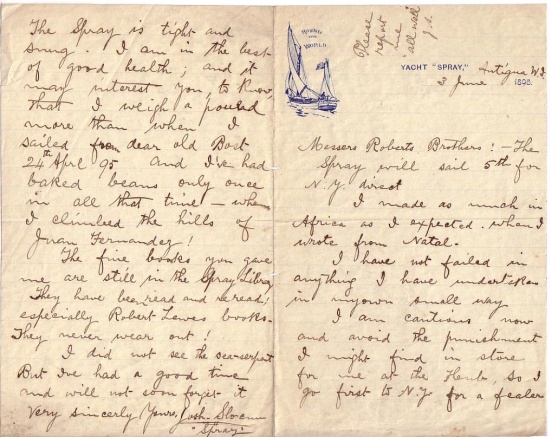 ROUND
THE
WORLD
Please
report
me
all well
J.S.
YACHT "SPRAY,"
Antigua W.I.
3 June 1898.
Messers Roberts Brothers! - The
Spray will sail 5th for
N.Y. direct
I made as much in
Africa as I expected. when I
wrote from Natal.
I have not failed in
anything I have undertaken
in my own small way
I am cautious now
and avoid the punishment
I might find in store
for me at the Hands, so I
go first to N.Y. for a fealer
The Spray is tight and
snug. I am in the best
of good health, and it
may interest you, to know,
that I weigh a pound
more than when I
sailed from dear old Bost
24th Aprl 95 and I've had
baked beans only once
in all that time - when
I climbed the hills of
Juan Fernandez!
The fine books you gave
me are still in the Spray Libra
They have been read and reread!
especially Robert Lewes books.
They never wear out!
I did not see the sea-serpent
But I've had a good time
and will not soon forget it
Very sincerely Yours, Josh. Slocum
"Spray"